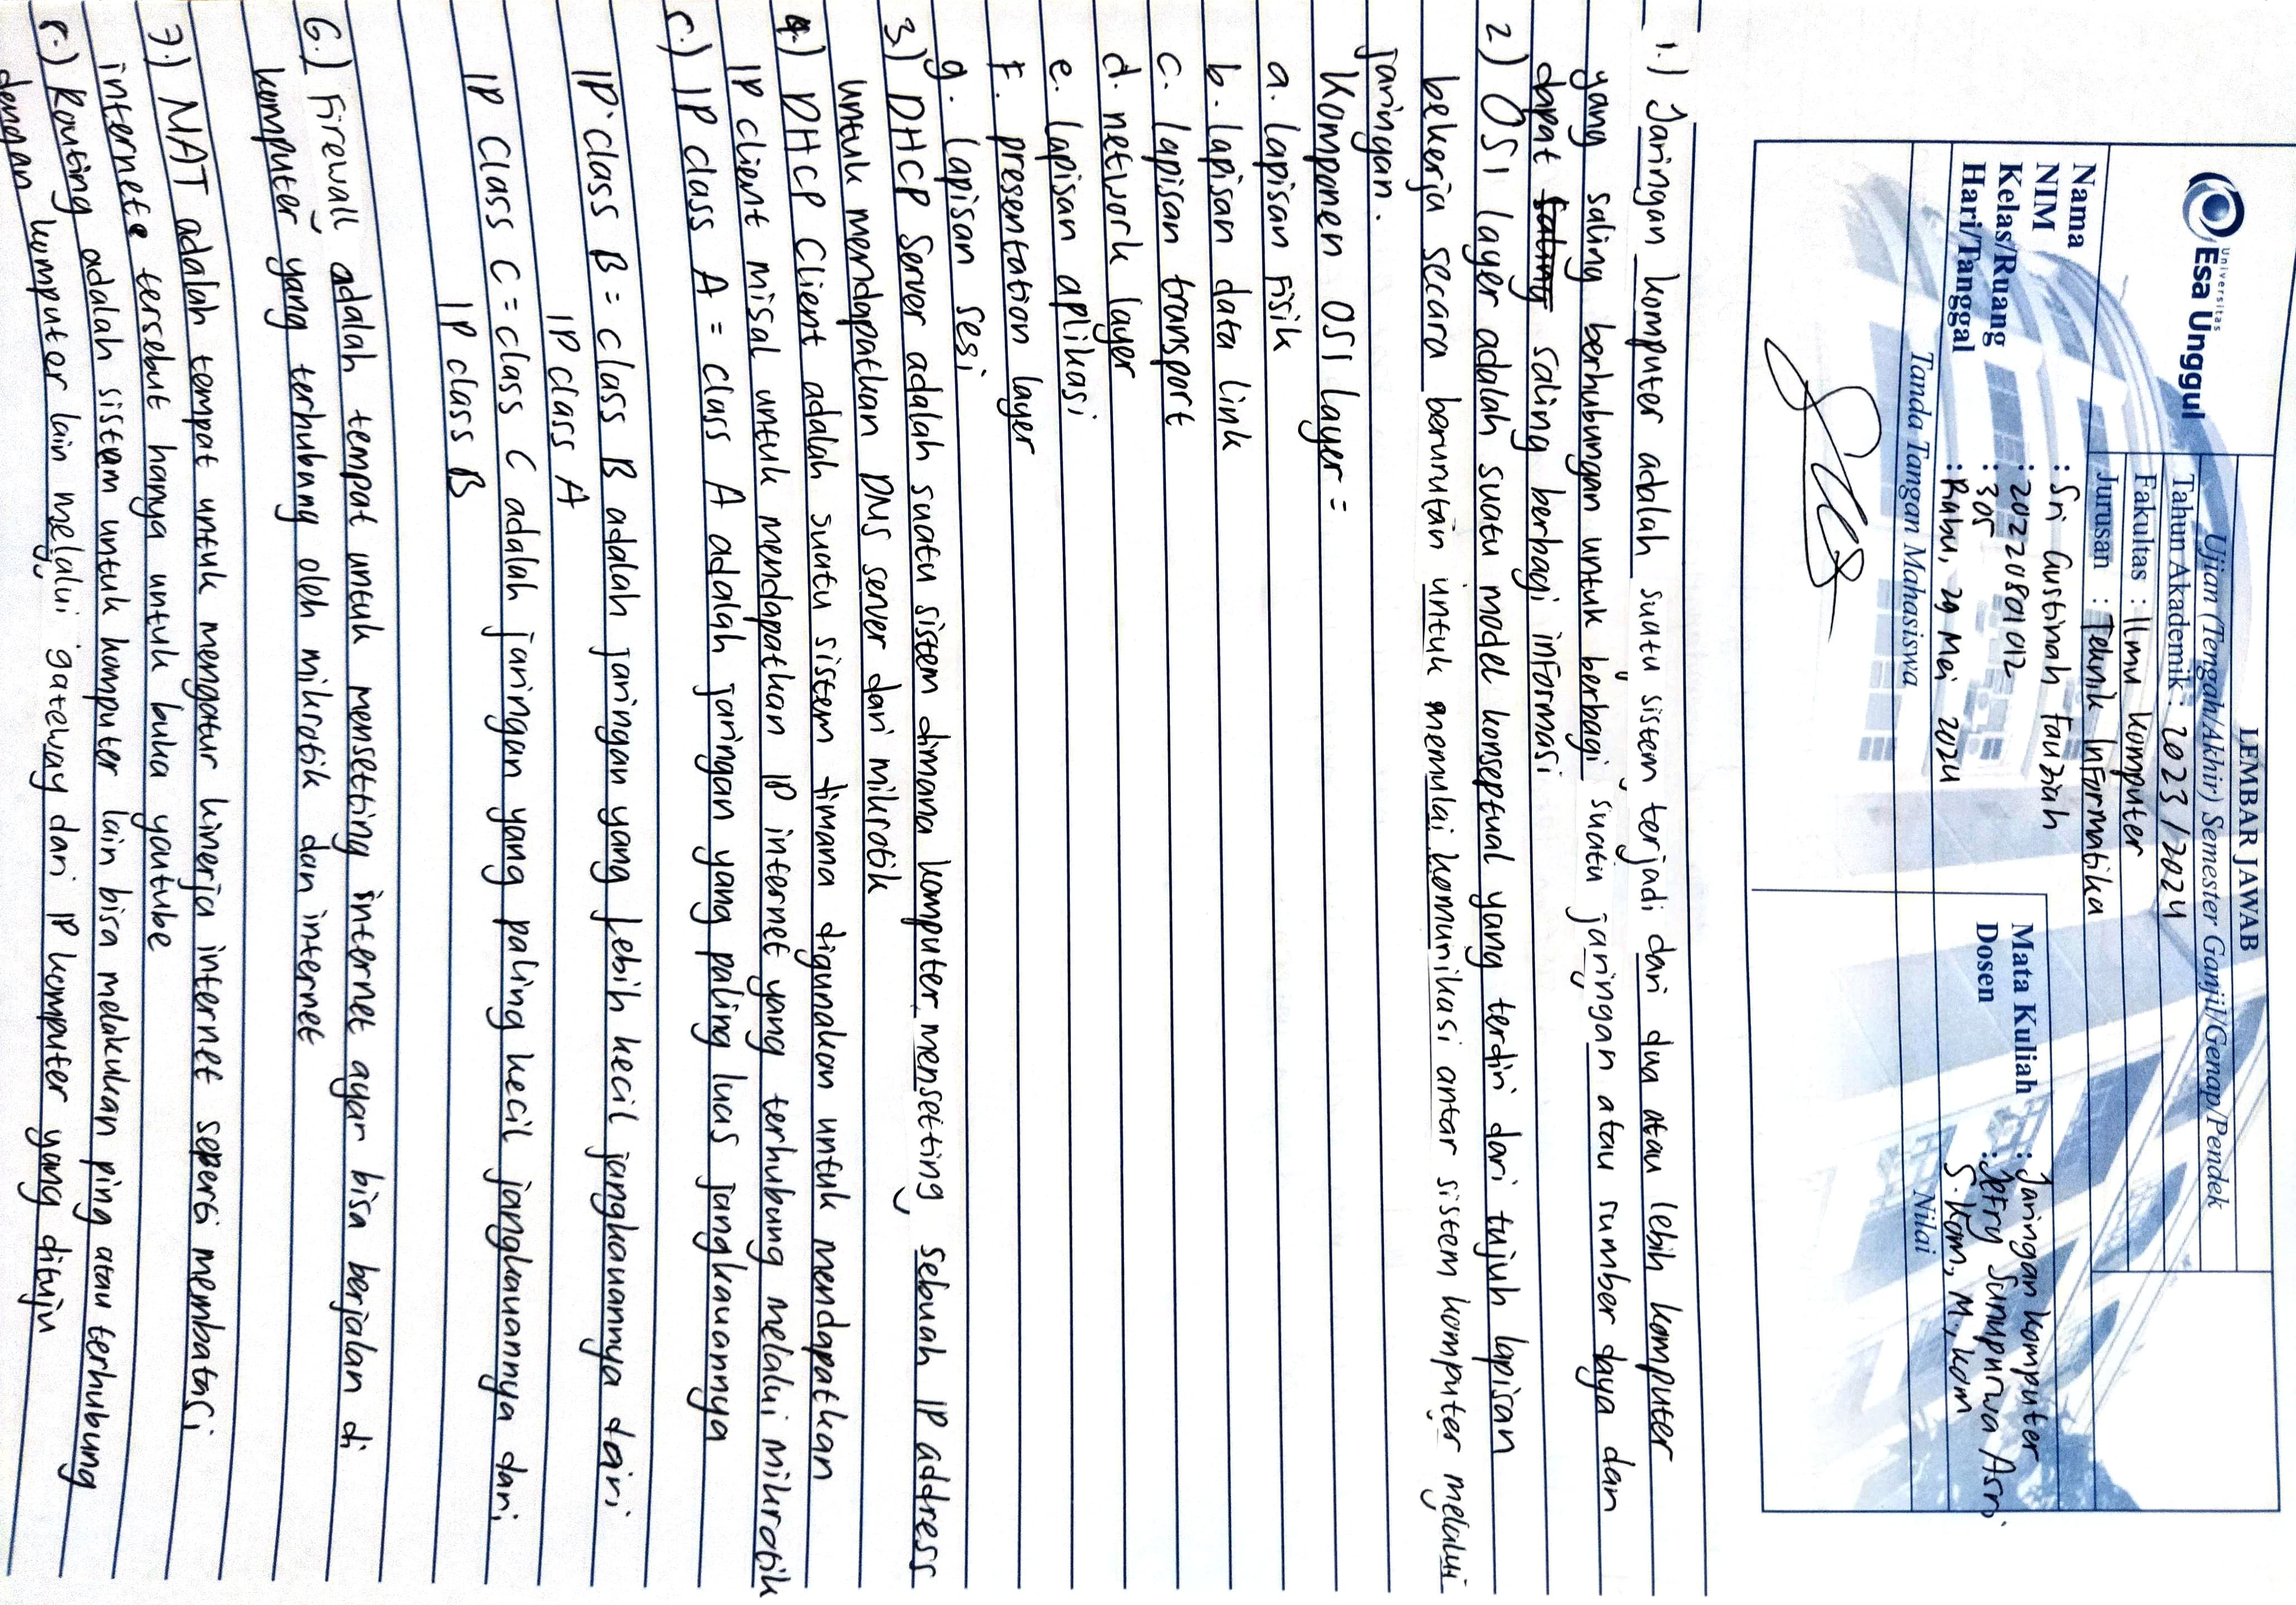 Universitas
Esa Unggul
LEMBAR JAWAB
Ujian (Tengah/Akhir) Semester Ganjil/Genap/Pendek
Tahun Akademik : 2023/2024
Fakultas : Ilmu Komputer
Jurusan : Teknik InFormatika
Nama : Sri Gustinah Fauziah
NIM : 20220801012
Kelas/Ruang : 305
Hari/Tanggal : Rabu, 29 Mei 2024
Mata Kuliah : Jaringan Komputer
Dosen : Jefry Sunupurwa Asri
S.Kom, M., Kom
Tanda Tangan Mahasiswa
Nilai
1.) Jaringan komputer adalah suatu sistem terjadi dari dua atau lebih komputer
yang saling berhubungan untuk berbagi suatu jaringan atau sumber daya dan
dapat saling saling berbagi informasi
2) OSI layer adalah suatu model konseptual yang terdiri dari tujuh lapisan
bekerja secara berurutan untuk memulai komunikasi antar sistem komputer melalui
jaringan.
Komponen OSI layer =
a. lapisan Fisik
b. lapisan data link
c. lapisan transport
d. network layer
e. lapisan aplikasi
F. presentation layer
g. lapisan sesi
3) DHCP Server adalah suatu sistem dimana komputer mensetting sebuah IP address
untuk mendapatkan DNS server dari mikrotik
4.) DHCP Client adalah suatu sistem dimana digunakan untuk mendapatkan
IP client misal untuk mendapatkan IP internet yang terhubung melalui mikrotik
5.) IP class A = class A adalah jaringan yang paling luas jangkauannya
IP class B = class B adalah jaringan yang Lebih kecil jangkauannya dari
IP class A
IP Class C = class C adalah jaringan yang paling kecil jangkauannya dari
IP class B
6.) Firewall adalah tempat untuk mensetting internet agar bisa berjalan di
komputer yang terhubung oleh mikrotik dan internet
7.) NAT adalah tempat untuk mengatur kinerja internet seperti membatasi
internet tersebut hanya untuk buka youtube
8.) Routing adalah sistem untuk komputer lain bisa melakukan ping atau terhubung
dengan komputer lain melalui gateway dari IP komputer yang dituju